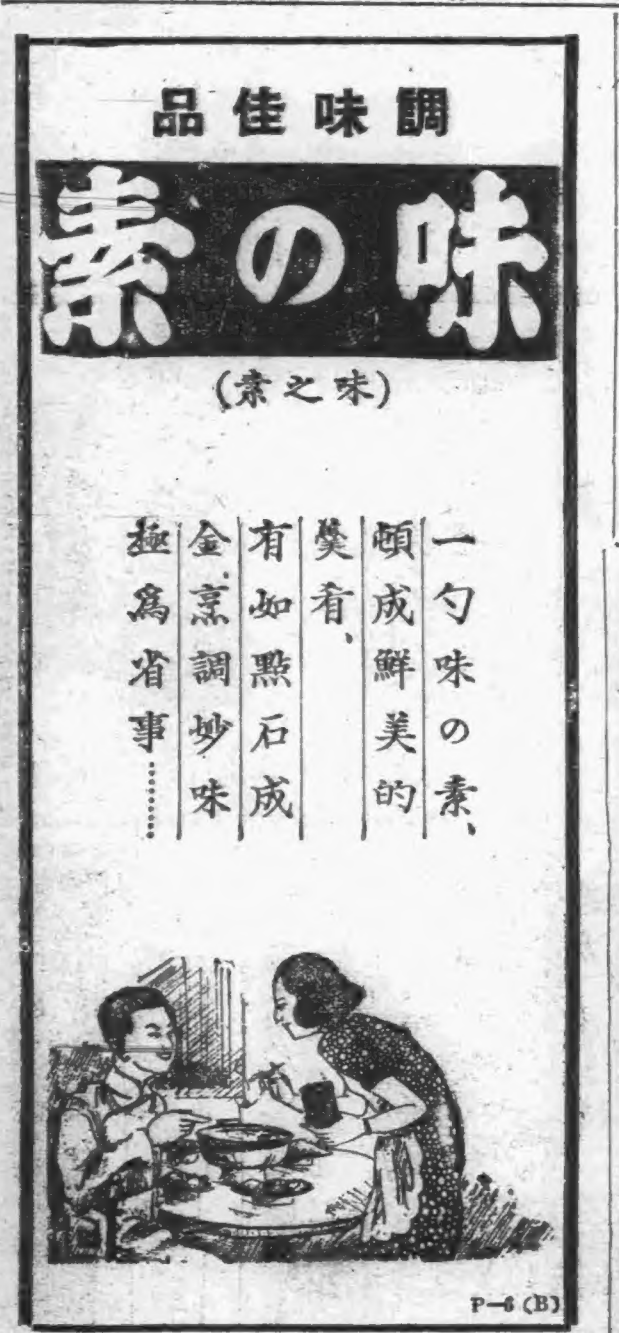 調味佳品
味の素
(味之素)
一勺味の素、
頓成鮮美的
羹肴、
有如點石成
金、烹調妙味
極爲省事………
P—6 (B)